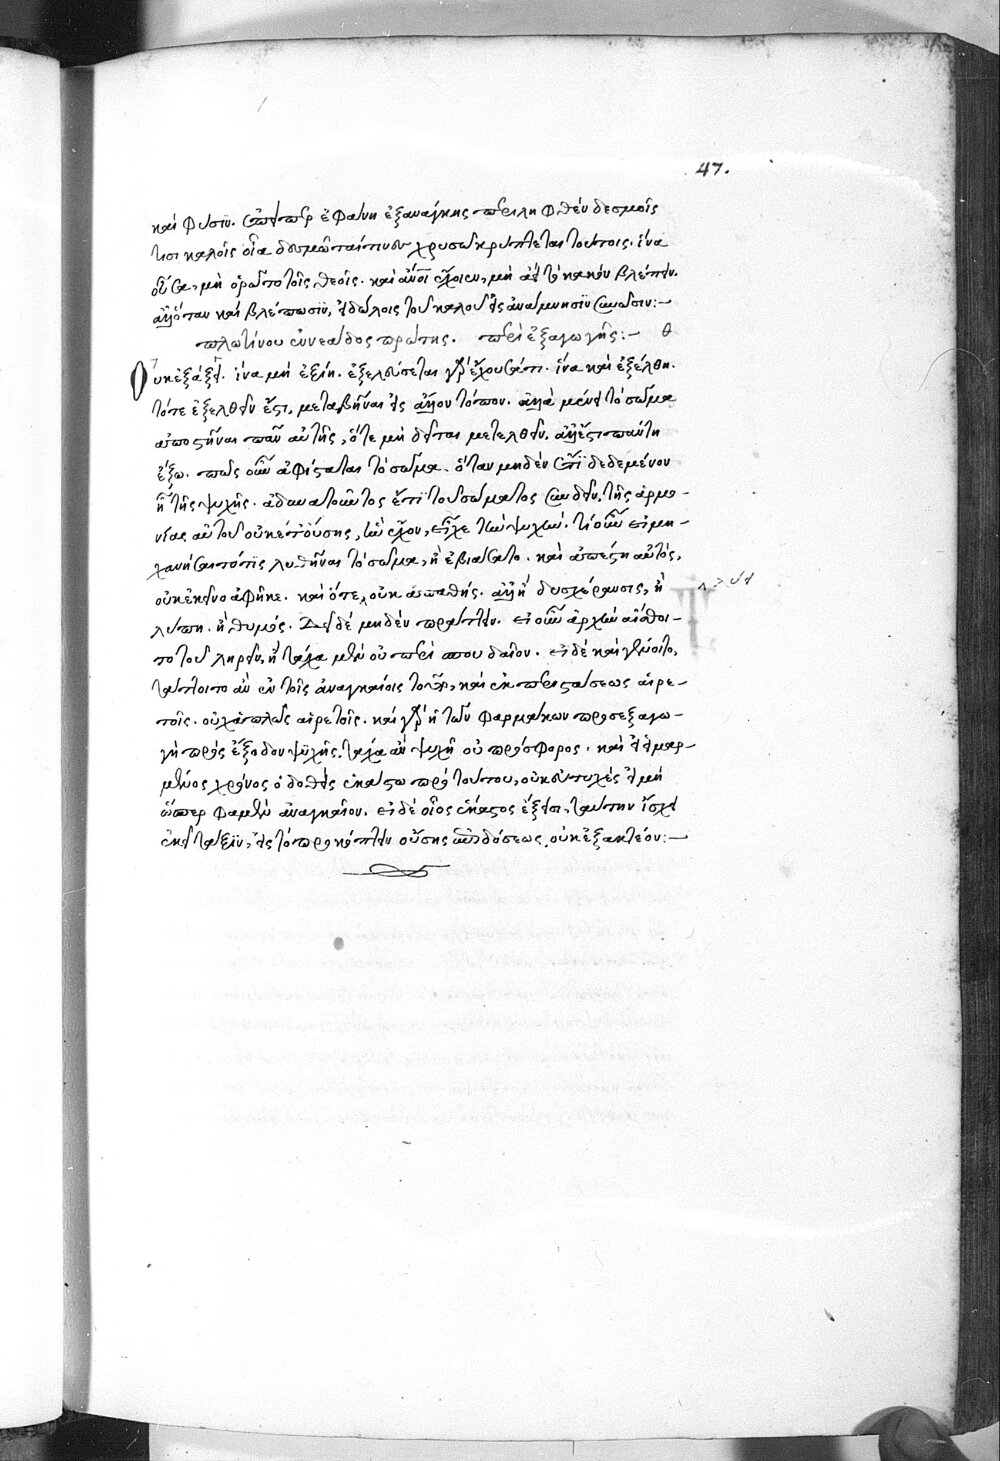 47.
καὶ φύσιν. ὥσπερ ἐφάνη ἐξανάγκης περιληφθὲν δεσμοῖς
τισι καλοῖς οἷα δεσμῶταί τινες χρυσῷ κρύπτεται τούτοις. ἵνα
οὖσα, μὴ ὁρῷτο τοῖς θεοῖς. καὶ αὐτοὶ ἔχοιεν, μὴ ἀεὶ τὸ κακὸν βλέπειν.
ἀλλ' ὅταν καὶ βλέπωσιν, εἰδώλοις τοῦ καλοῦ εἰς ἀνάμνησιν συνῶσιν:~
πλωτίνου ἐννεάδος πρώτης. περὶ ἐξαγωγῆς:~ θ
Οὐκ ἐξάξει. ἵνα μὴ ἐξίῃ. ἐξελεύσεται γὰρ ἔχουσά τι. ἵνα καὶ ἐξέλθῃ.
τότε ἐξελθεῖν ἔστι, μεταβῆναι εἰς ἄλλον τόπον. ἀλλὰ μένει τὸ σῶμα
ἀποστῆναι πᾶν αὐτῆς, ὅτε μὴ δεῖται μετελθεῖν. ἀλλ' ἔστι πάντη
ἔξω. πῶς οὖν ἀφίσταται τὸ σῶμα. ὅταν μηδὲν ἔτι δεδεμένον
ᾖ τῆς ψυχῆς. ἀδυνατοῦντος ἔτι τοῦ σώματος συνδεῖν, τῆς ἁρμο-
νίας αὐτοῦ οὐκέτ' οὔσης, ἣν ἔχον, εἶχε τὴν ψυχήν. τί οὖν εἰ μη-
χανήσαιτό τις λυθῆναι τὸ σῶμα, ἢ ἐβιάσατο. καὶ ἀπέστη αὐτός,
οὐκ ἐκεῖνο ἀφῆκε. καὶ ὅτε λύει
οὐκ ἀπαθής. ἀλλ' ἢ δυσχέρανσις, ἢ
λύπη. ἢ θυμός. δεῖ δὲ μηδὲν πράττειν. εἰ οὖν ἀρχὴν αἴσθοι-
το τοῦ ληρεῖν, ἢ τάχα μὲν οὐ περὶ σπουδαῖον. εἰ δὲ καὶ γένοιτο,
τάττοιτο ἂν ἐν τοῖς ἀναγκαίοις τοῦτο, καὶ ἐκ περιστάσεως αἱρε-
τοῖς. οὐχ ἁπλῶς αἱρετοῖς. καὶ γὰρ ἡ τῶν φαρμάκων προσεξαγω-
γὴ πρὸς ἔξοδον ψυχῆς, τάχα ἂν ψυχῇ οὐ πρόσφορος. καὶ εἰ εἱμαρ-
μένος χρόνος ὁ δοθεὶς ἑκάστῳ πρὸ τούτου, οὐκ εὐτυχές εἰ μὴ
ὥσπερ φαμὲν ἀναγκαῖον. εἰ δὲ οἷος ἕκαστος ἔξεισι, ταύτην ἴσχει
ἐκεῖ τάξιν, εἰς τὸ προκόπτειν οὔσης ἐπιδόσεως οὐκ ἐξακτέον:~